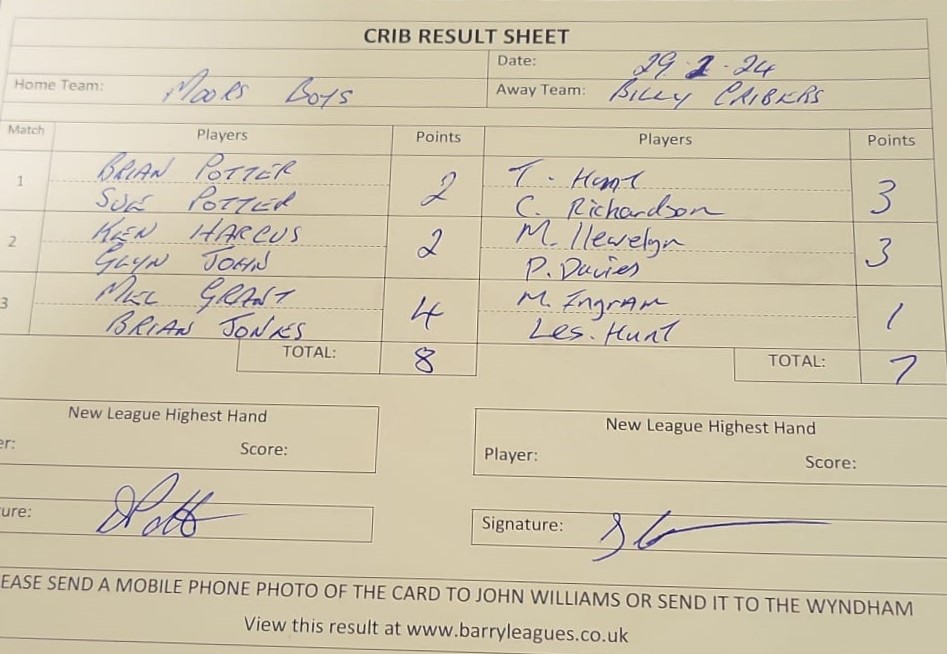 CRIB RESULT SHEET
Date: 29.2.24
Home Team: MOORS BOYS
Away Team: BILLY CRIBERS
Match Players Points Players Points
1 BRIAN POTTER 2 T. Hunt 3
SUE POTTER C. Richardson
2 KEN HARCUS 2 M. Llewelyn 3
GLYN JOHN P. Davies
3 MEL GRANT 4 M. INGRAM 1
BRIAN JONES Les. Hunt
TOTAL: 8 TOTAL: 7
New League Highest Hand New League Highest Hand
er: Score: Player: Score:
ure: Signature:
EASE SEND A MOBILE PHONE PHOTO OF THE CARD TO JOHN WILLIAMS OR SEND IT TO THE WYNDHAM
View this result at www.barryleagues.co.uk